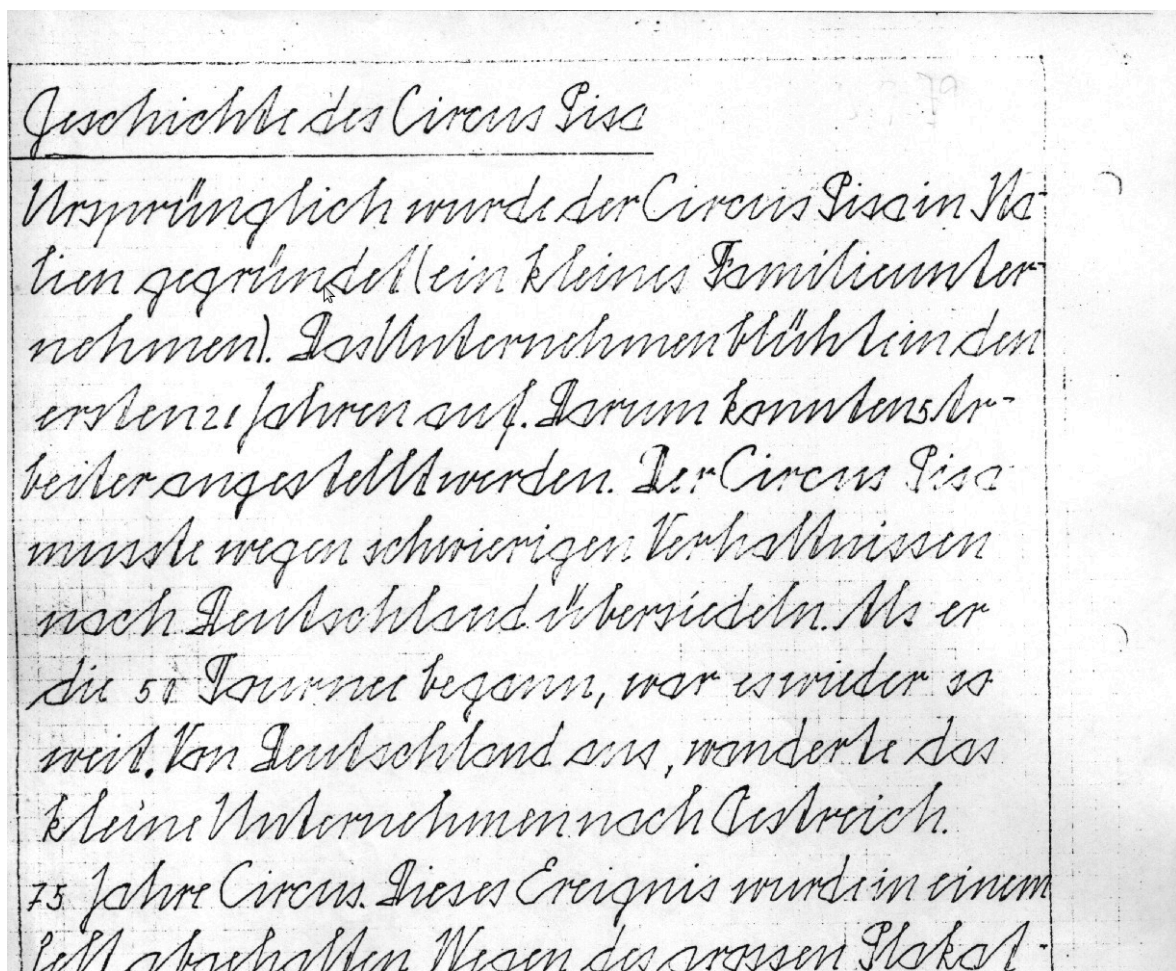 Geschichte des Circus Pisa
Ursprünglich wurde der Circus Pisa in Ita-
lien gegründet (ein kleines Familieunter-
nehmen). Das Unternehmen blühte in den
ersten 21 Jahren auf. Darum konnten 5 Ar-
beiter angestellt werden. Der Circus Pisa
musste wegen schwierigen Verhaltnissen
nach Deutschland übersiedeln. Als er
die 50 Tournee begann, war es wieder so
weit. Von Deutschland aus, wanderte das
kleine Unternehmen nach Oestreich.
75 Jahre Circus. Dieses Ereignis wurde in einem
abgehalten Wegen des grossen Plakat-